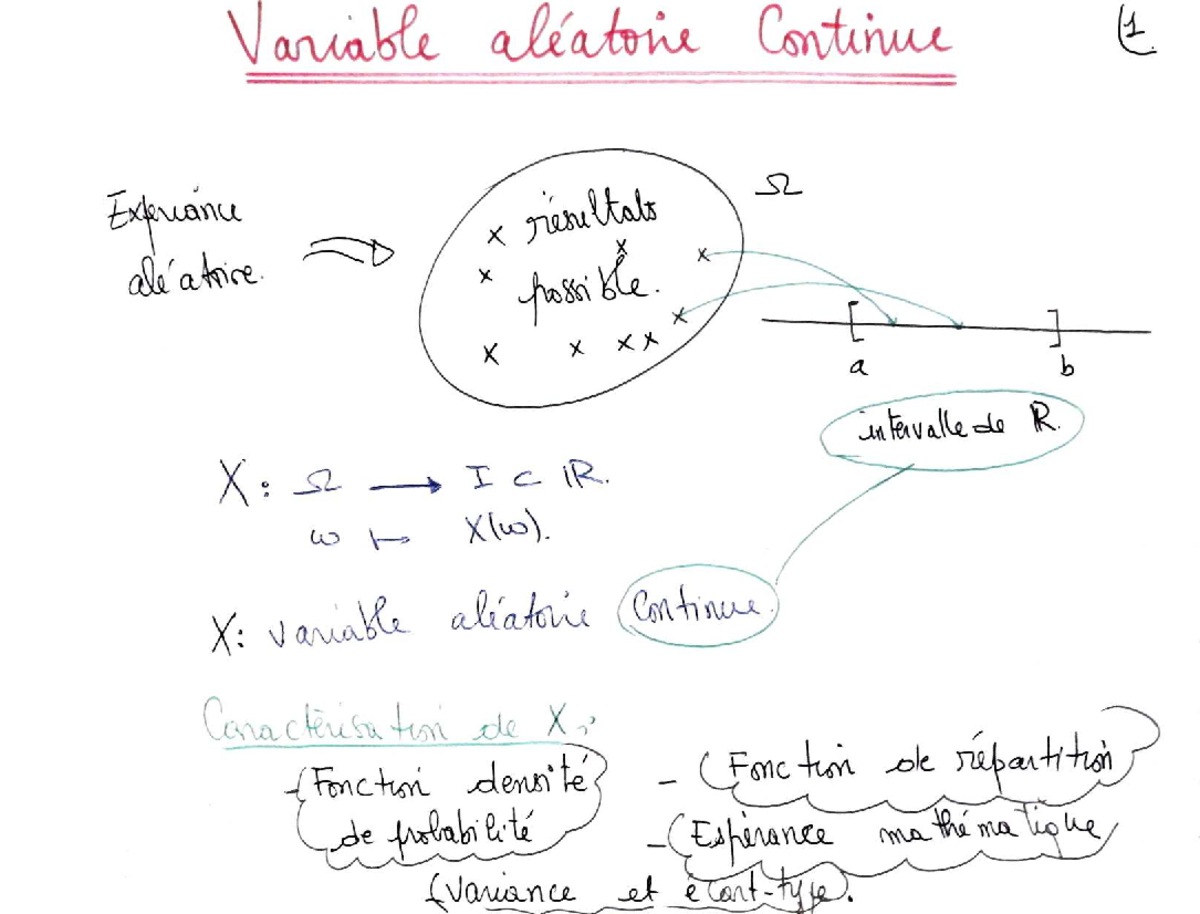 Variable aléatoire Continue
1
Ω
Expériance
aléatoire.
x résultats
possible.
a b
intervalle de R.
X: Ω → I ⊂ IR.
ω ↦ X(ω).
X: variable aléatoire Continue.
Caractérisation de X:
- Fonction densité
de probabilité
- Fonction de répartition
- Espérance mathématique
- Variance et écart-type.